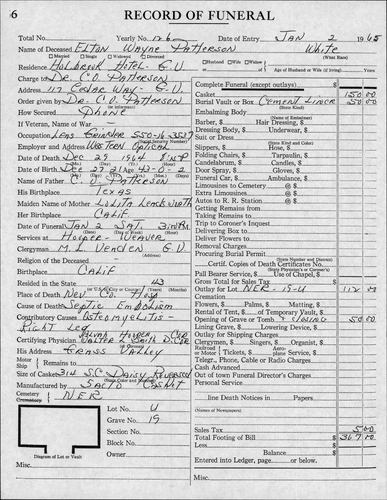 6 RECORD OF FUNERAL
Total No. Yearly No. 126 Date of Entry JAN 2 1965
Name of Deceased ELTON Wayne PATTERSON White
Married Single Widowed Divorced (What Race)
Residence HOLBROOK HOTEL - G.V. Husband Wife Widow of Age of Husband or Wife (if living)
Charge to DR. C.O. PATTERSON
Address 117 CEDAR WAY - G.V.
Order given by DR. C.O. PATTERSON
How Secured PHONE
If Veteran, Name of War
Occupation LENS GRINDER 550-16-3527
(Social Security Number)
Employer and Address WESTERN OPTICAL
Date of Death DEC 29 1964 8:15P
Date of Birth DEC 27 21 Age 43-0-2
Name of Father C. O. PATTERSON
His Birthplace TEXAS
Maiden Name of Mother LOLITA
Her Birthplace CALIF
Date of Funeral JAN 2 SAT. 3:00 PM
Services at HOOPER - WEAVER
Clergyman M. L. G.V.
Religion of the Deceased
Birthplace CALIF
Resided in the State 43
Place of Death NEV CO. HOSP
Cause of Death SEPTIC EMBOLISM
Contributory Causes OSTEOMYELITIS -
RIGHT LEG
Certifying Physician WALTER L. SMITH D. COR
His Address GRASS VALLEY
Motor Ship Remains to
Size of Casket 3/4 S.C. DAISY
Manufactured by SAC'TO CASKET
Cemetery NER
Lot No. U
Grave No. 19
Section No.
Block No.
Owner
Diagram of Lot or Vault
Misc.
Complete Funeral (except outlays) $
Casket 150.00
Burial Vault or Box CEMENT LINER 50.00
Embalming Body
(Name of Embalmer)
Barber, $ Hair Dressing, $
Dressing Body, $ Underwear, $
Suit or Dress
(State Kind and Color)
Slippers, $ Hose, $
Folding Chairs, $ Tarpaulin, $
Candelabrum, $ Candles, $
Door Spray, $ Gloves, $
Funeral Car, $ Ambulance, $
Limousines to Cemetery @ $
Extra Limousines @ $
Autos to R. R. Station @ $
Getting Remains from
Taking Remains to
Trip to Coroner's Inquest
Delivering Box to
Deliver Flowers to
Removal Charges
Procuring Burial Permit
(State Number and District)
Certif. Copies of Death Certificates No.
(State Physician's or Coroner's)
Pall Bearer Service, $ Use of Chapel, $
Gross Total for Sales Tax $
Outlay for Lot NER - 19-U 112 00
Cremation
Flowers, $ Palms, $ Matting, $
Rental of Tent, $ of Temporary Vault, $
Opening of Grave or Tomb + LINING 50 00
Lining Grave, $ Lowering Device, $
Outlay for Shipping Charges
Clergymen, $ Singers, $ Organist, $
Railroad or Motor Tickets, $ Aeroplane Service, $
Telgr., Phone, Cable or Radio Charges
Cash Advanced
Out of town Funeral Director's Charges
Personal Service
line Death Notices in Papers
(Names of Newspapers)
Sales Tax 5.00
Total Footing of Bill $ 367.00
Less
Balance $
Entered into Ledger, page or below.
Misc.